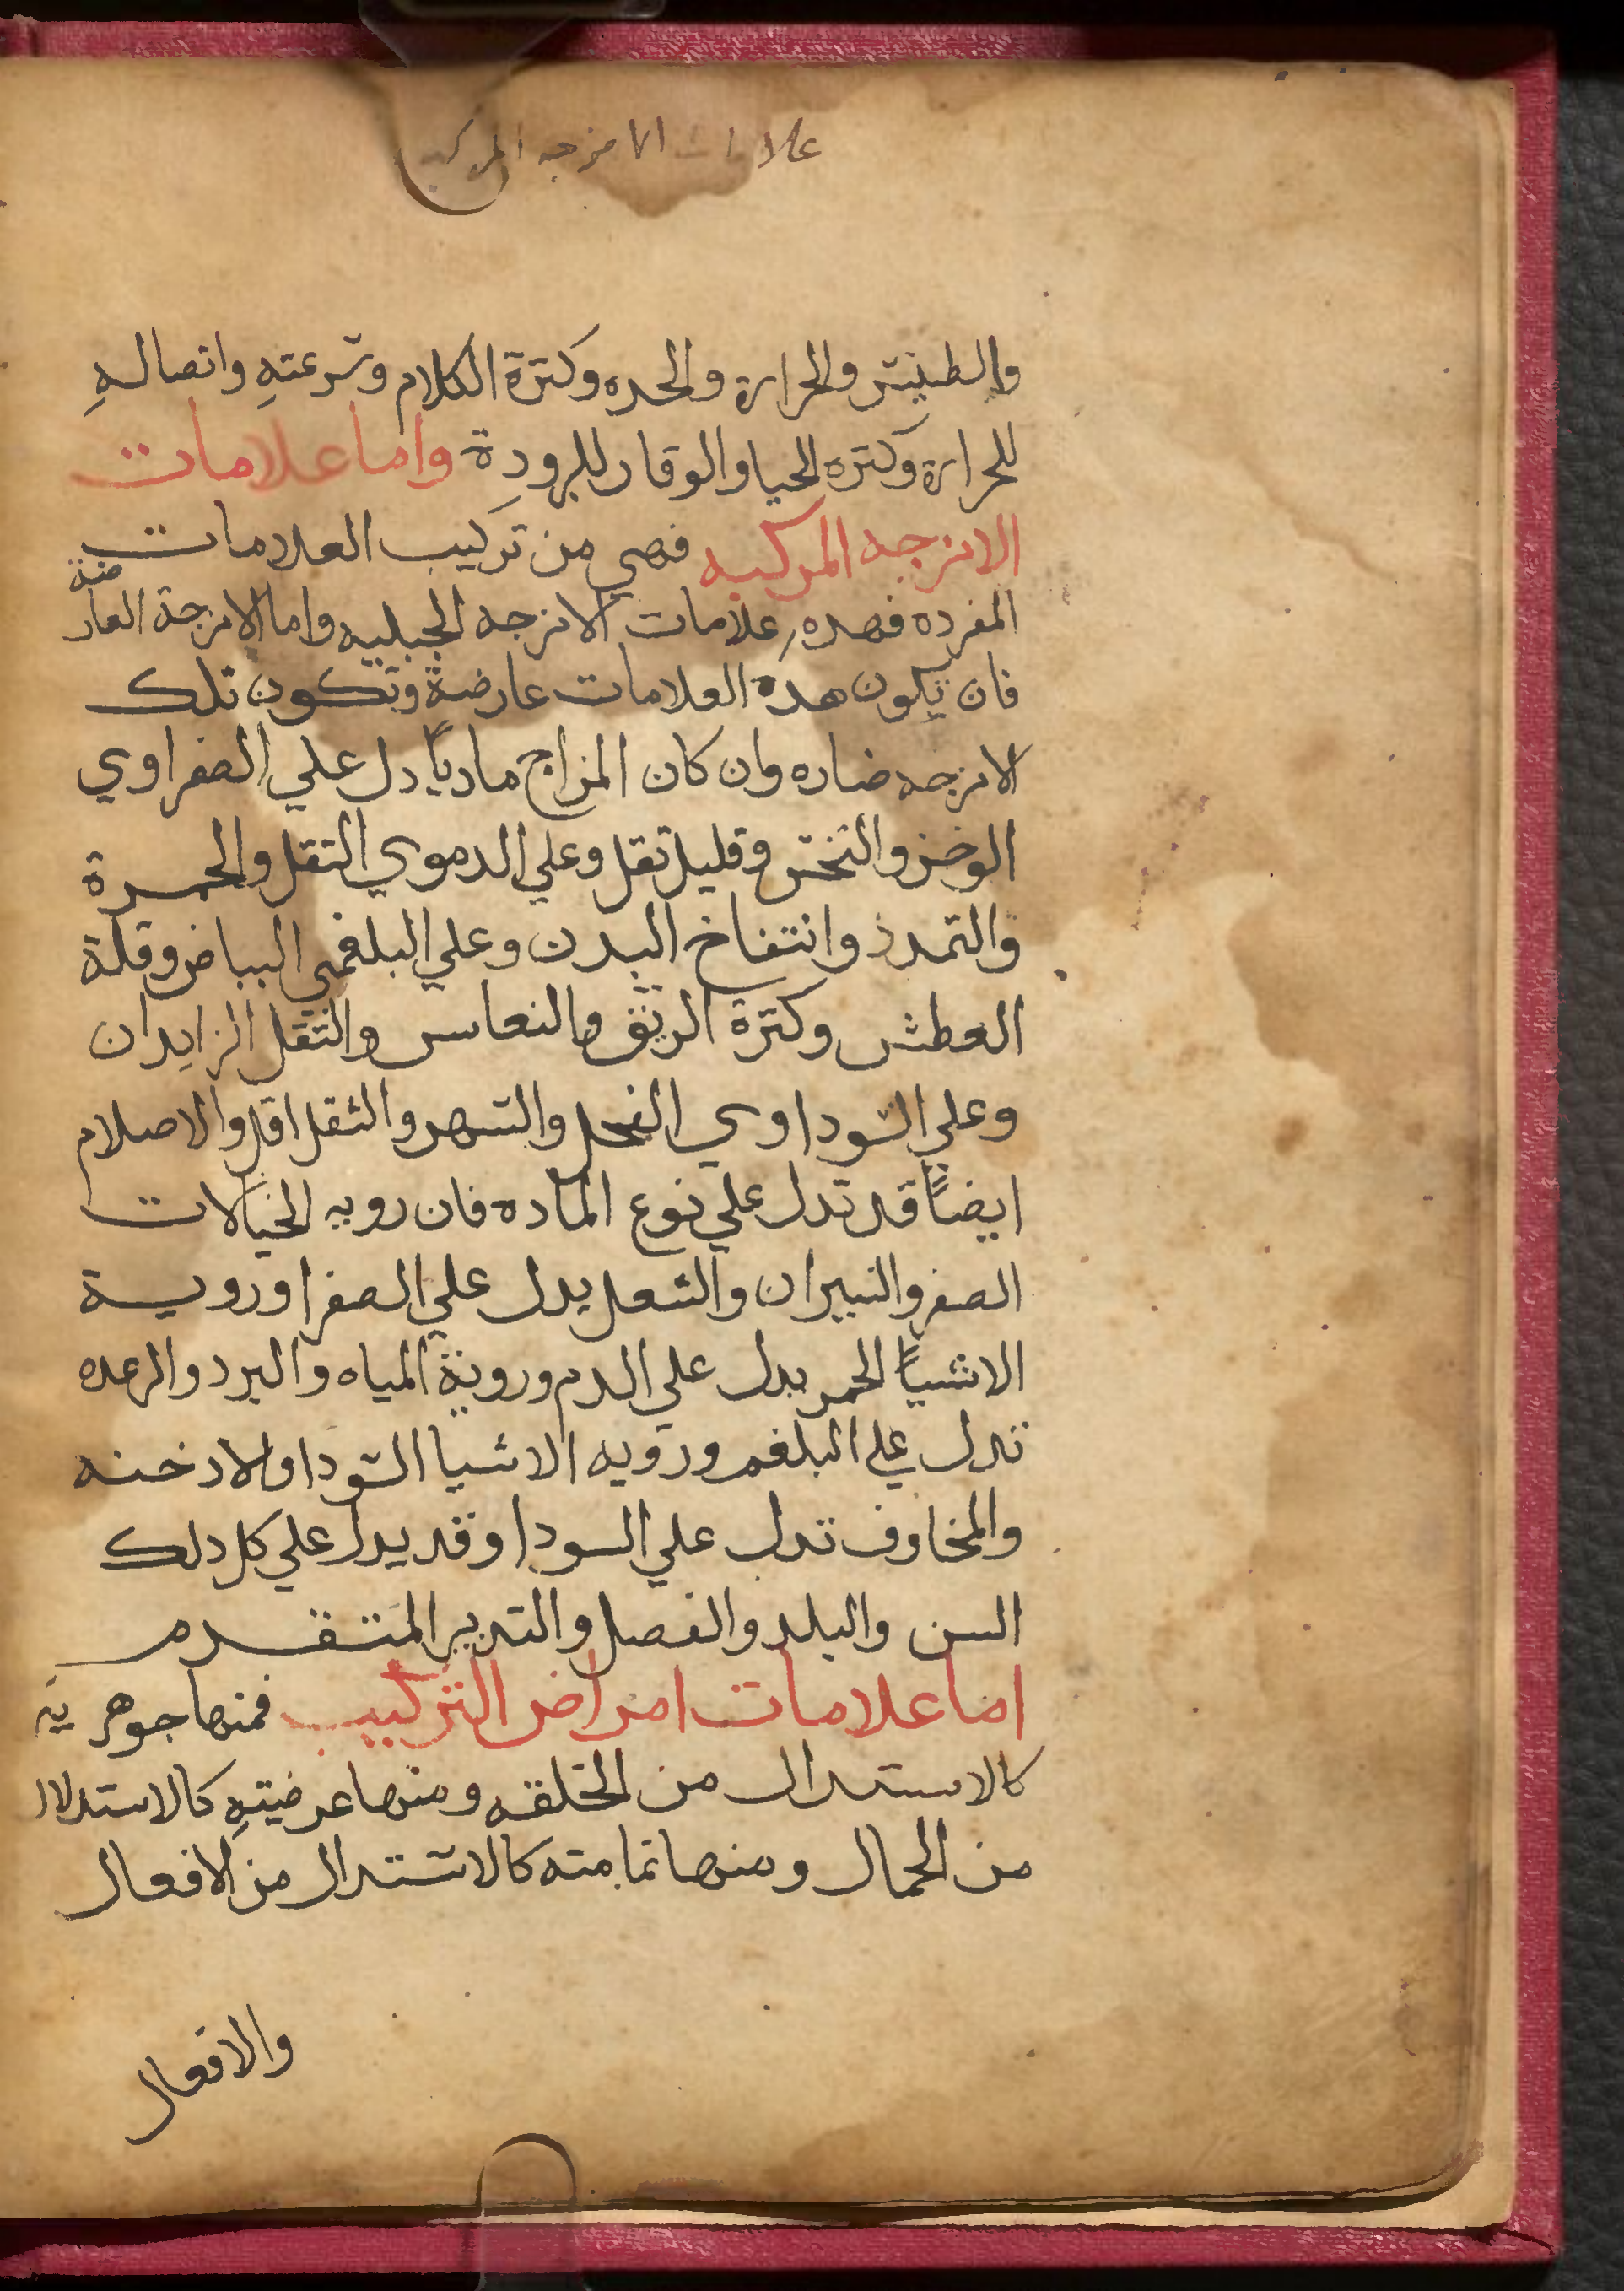 علامات الامزجه المركبه
والطيش والحراره والحده وكترة الكلام وسرعتهِ واتصالهِ
للحراره وكتره الحيا والوقار للبرودة واما علامات
الامزجه المركبه فهي من تركيب العلامات
المفرده فهده علامات الامزجه الجبليه واما الامزجة العارضة
فان تكون هده العلامات عارضة وتكون تلك
الامزجه ضاره وان كان المزاج مادياً دل علي الصفراوي
الوخز والنخس وقليل تقل وعلي الدموي التقل والحمرة
والتمدد وانتفاخ البدن وعلي البلغمي البياض وقلة
العطش وكترة الريق والنعاس والتقل الزايدان
وعلي السوداوي القحل والسهر والثقل اقل والاحلام
ايضاً قد تدل علي نوع الماده فان رويه الخيالات
الصفر والنيران والشعل يدل علي الصفرا وروية
الاشياً الحمر يدل علي الدم وروية المياه والبرد والرعده
تدل علي البلغم ورويه الاشيا السودا والادخنه
والمخاوف تدل علي السودا وقد يدل علي كل دلك
السن والبلد والفصل والتدبير المتقدم
اما علامات امراض التركيب فمنها جوهرية
كالاستدال من الخلقه ومنها عرضيتهِ كالاستدلال
من الجمال ومنها تماميته كالاستدال من الافعال
والافعال